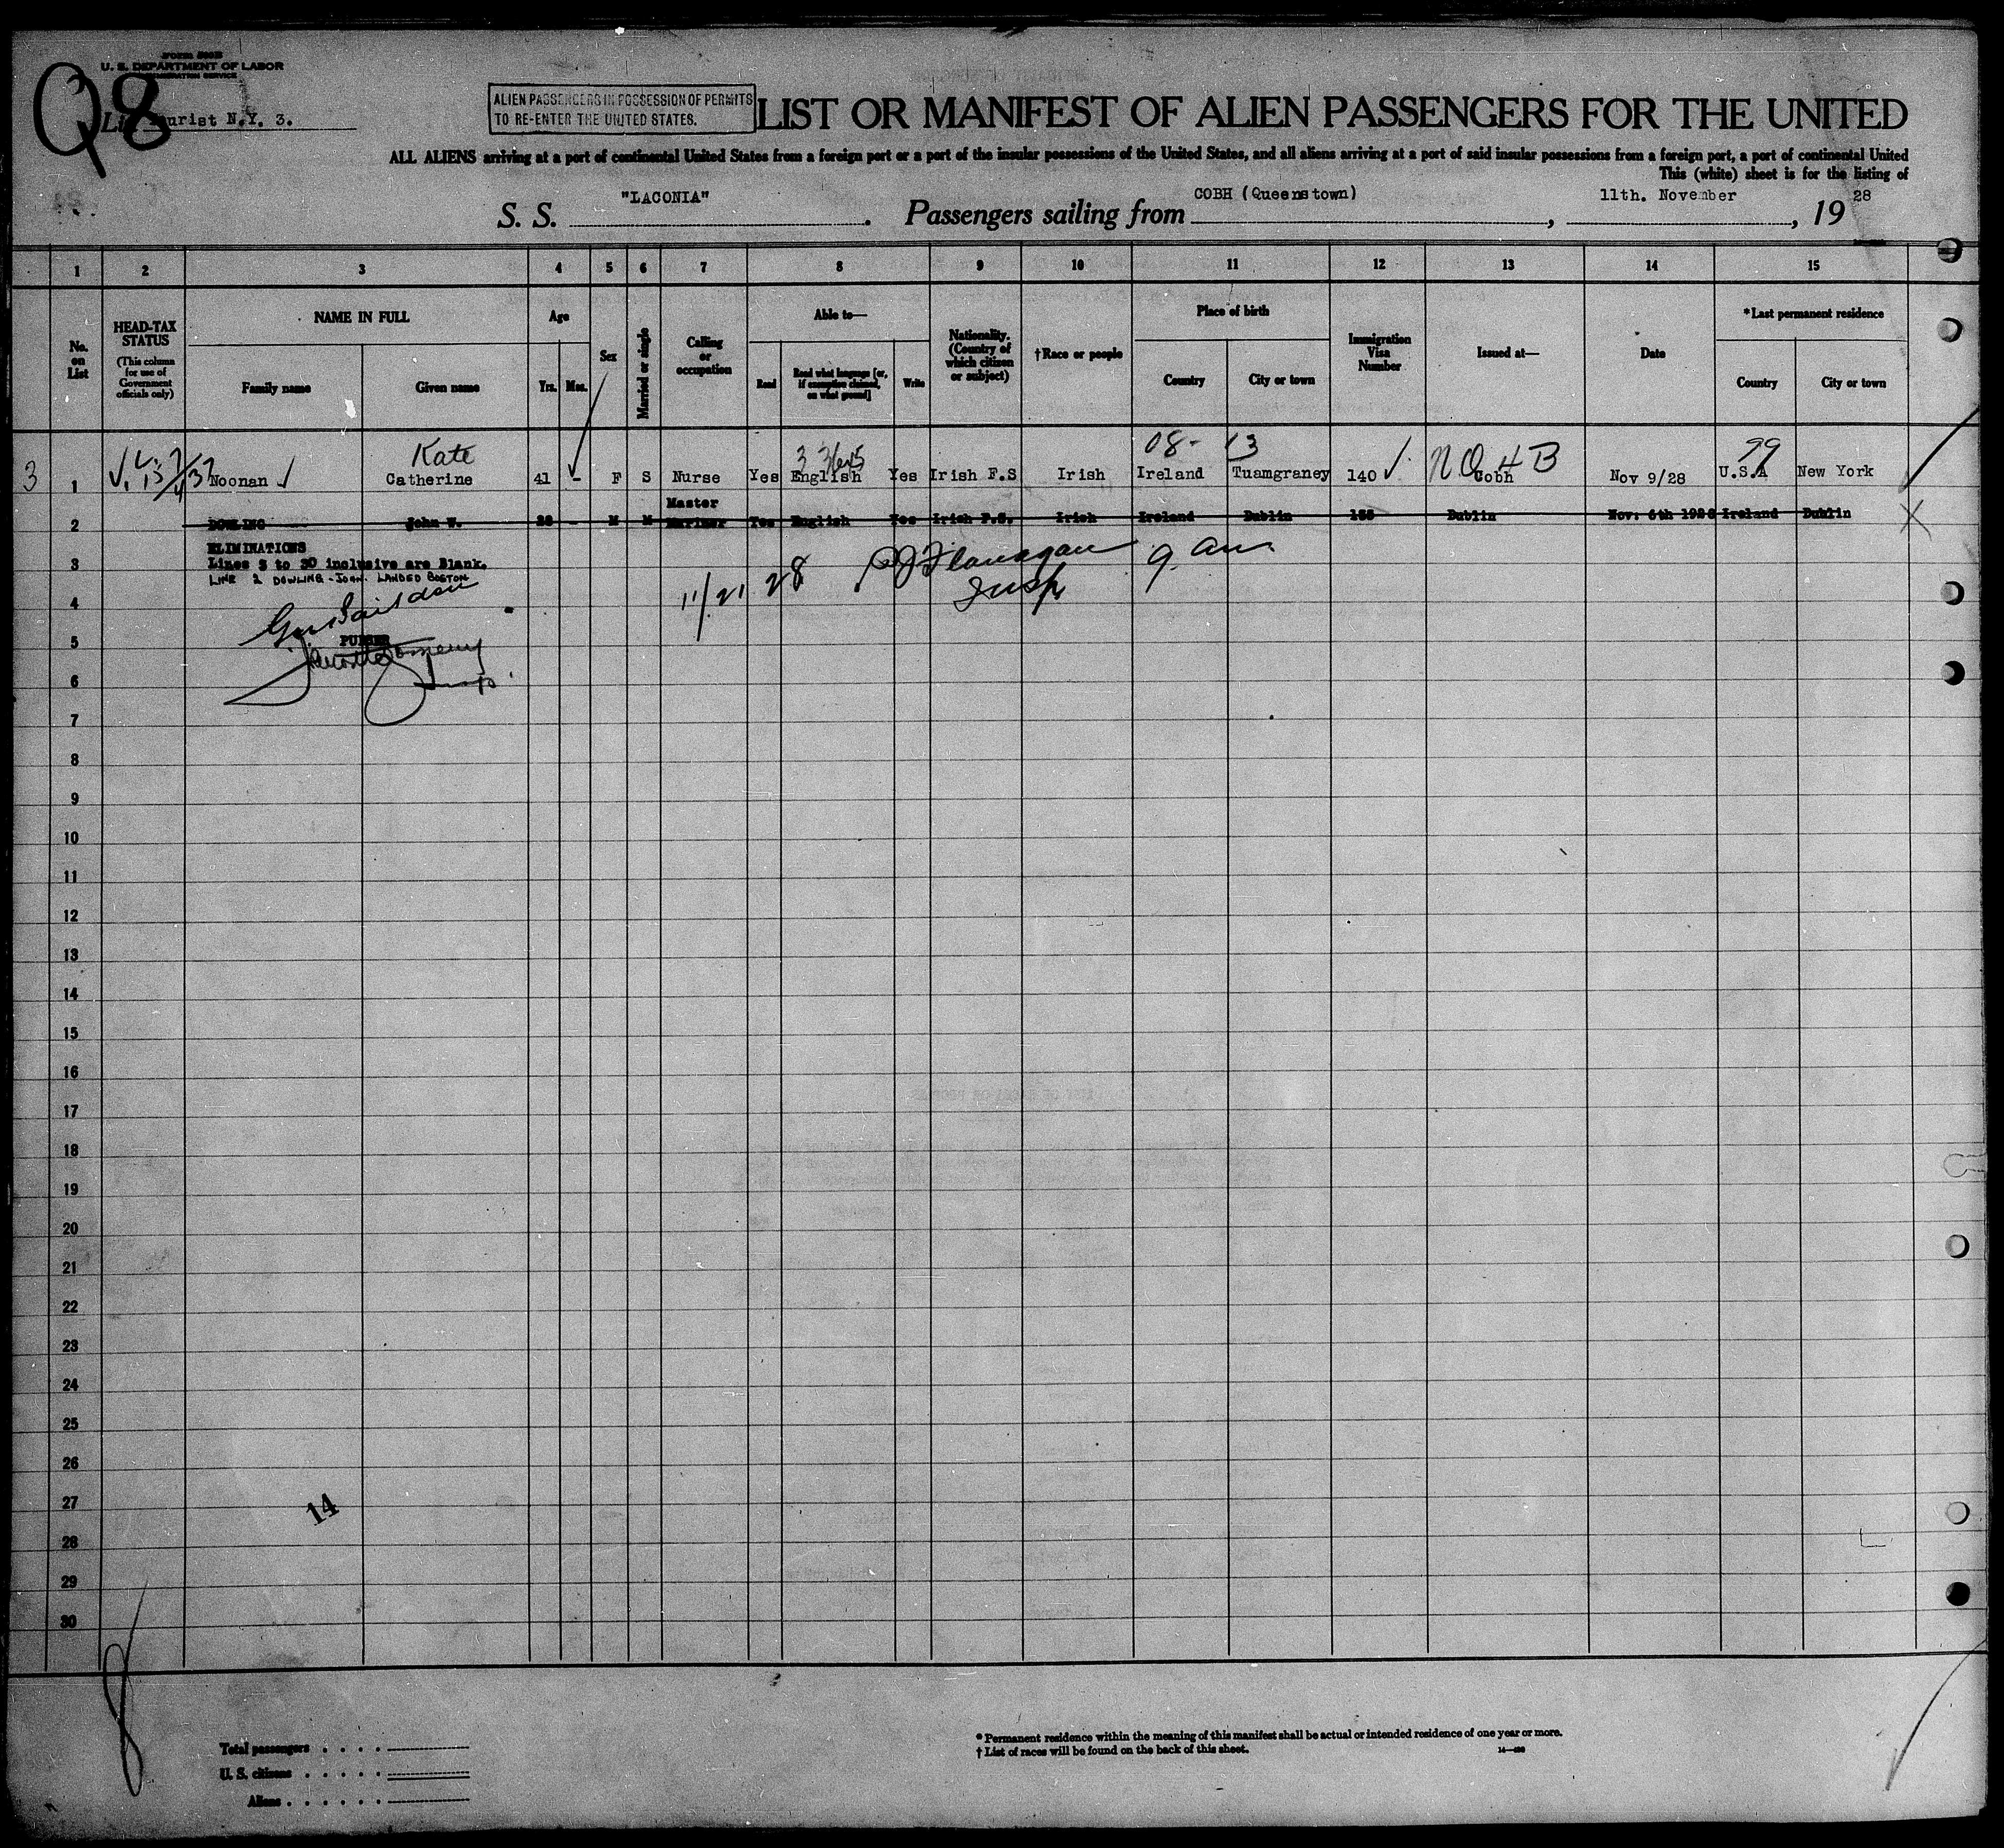 Form 500B
U. S. DEPARTMENT OF LABOR
IMMIGRATION SERVICE
Q8
List Tourist N.Y. 3.
ALIEN PASSENGERS IN POSSESSION OF PERMITS
TO RE-ENTER THE UNITED STATES.
LIST OR MANIFEST OF ALIEN PASSENGERS FOR THE UNITED
ALL ALIENS arriving at a port of continental United States from a foreign port or a port of the insular possessions of the United States, and all aliens arriving at a port of said insular possessions from a foreign port, a port of continental United
This (white) sheet is for the listing of
S. S. "LACONIA". Passengers sailing from COBH (Queenstown), 11th. November, 19 28
1 2 3 4 5 6 7 8 9 10 11 12 13 14 15
No. on List
HEAD-TAX STATUS
(This column for use of Government officials only)
NAME IN FULL
Family name Given name
Age
Yrs. Mos.
Sex
Married or single
Calling or occupation
Able to—
Read Read what language [or, if exemption claimed, on what ground] Write
Nationality. (Country of which citizen or subject)
†Race or people
Place of birth
Country City or town
Immigration Visa Number
Issued at—
Date
*Last permanent residence
Country City or town
Kate 08- 13 NO HB 99
3 1 Noonan Catherine 41 - F S Nurse Yes English Yes Irish F.S Irish Ireland Tuamgraney 140 Cobh Nov 9/28 U.S.A New York
2 DOWLING John W. 28 - M M Master Mariner Yes English Yes Irish F.S. Irish Ireland Dublin Dublin Nov: 6th 1928 Ireland Dublin X
ELIMINATIONS
3 Lines 3 to 30 inclusive are Blank.
LINE 2 DOWLING - JOHN. LANDED BOSTON
11/21 28 Flanagan 9 am
Insp
4
5 PURSER
Montgomery
6 Insp.
7
8
9
10
11
12
13
14
15
16
17
18
19
20
21
22
23
24
25
26
27
14
28
29
30
Total passengers . . . .
U. S. citizens . . . . .
Aliens . . . . . .
* Permanent residence within the meaning of this manifest shall be actual or intended residence of one year or more.
† List of races will be found on the back of this sheet.